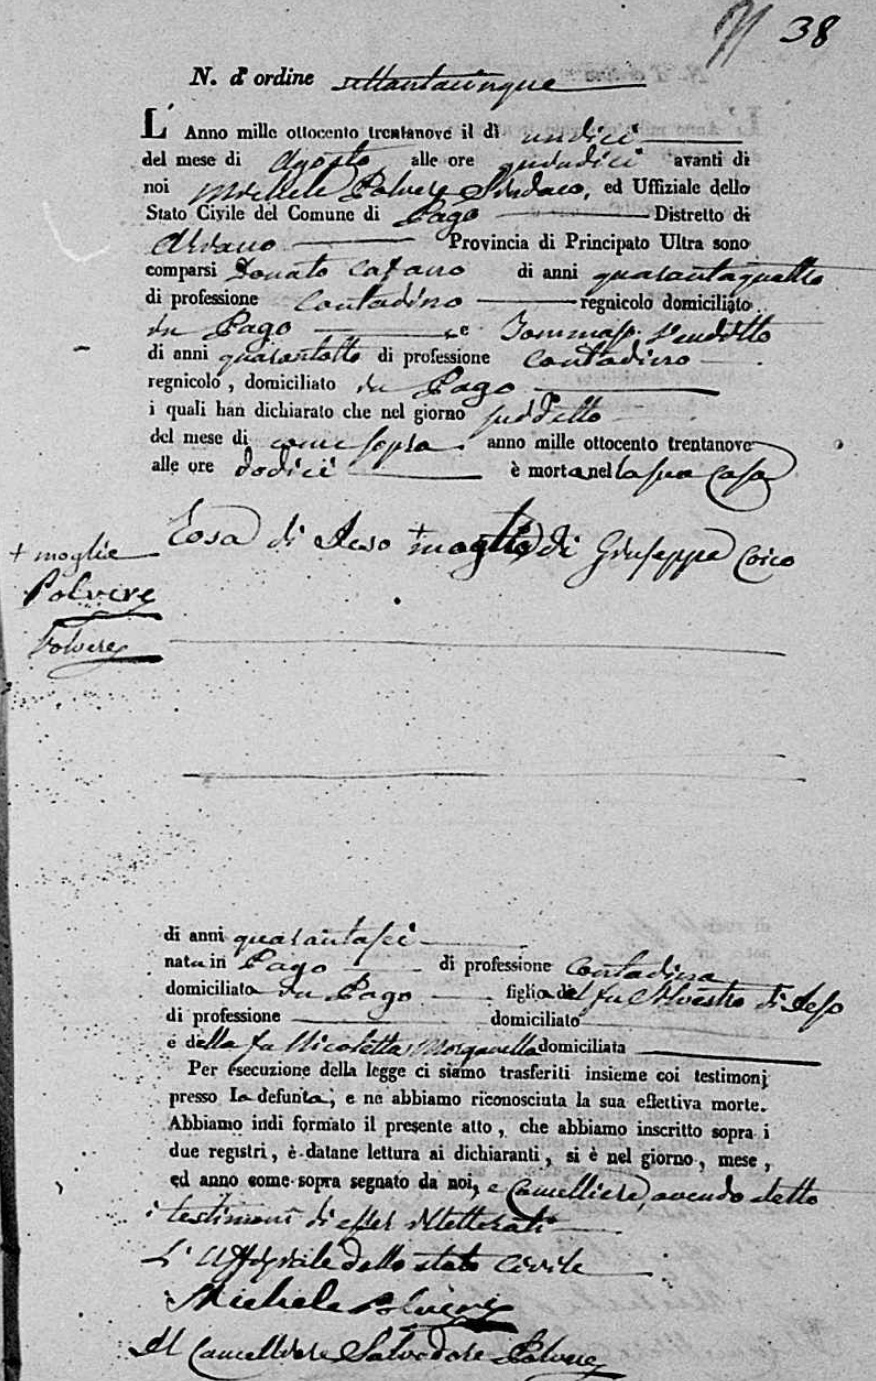 38
N. d'ordine settantacinque
L'Anno mille ottocento trentanove il dì undici
del mese di Agosto alle ore quindici avanti di
noi Michele Polvere Sindaco, ed Uffiziale dello
Stato Civile del Comune di Pago Distretto di
Ariano Provincia di Principato Ultra sono
comparsi Donato Catauro di anni quarantaquattro
di professione Contadino regnicolo domiciliato
in Pago e Tommaso
di anni quarantotto di professione Contadino
regnicolo, domiciliato in Pago
i quali han dichiarato che nel giorno suddetto
del mese di come sopra anno mille ottocento trentanove
alle ore dodici è morta nella sua Casa
+ moglie
Polvere
Polvere
Rosa di Ieso + moglie di Giuseppe Coico
di anni quarantasei
nata in Pago di professione Contadina
domiciliata in Pago figlia del fu Silvestro di Ieso
di professione domiciliato
e della fu Nicoletta Morganella domiciliata
Per esecuzione della legge ci siamo trasferiti insieme coi testimonj
presso la defunta, e ne abbiamo riconosciuta la sua effettiva morte.
Abbiamo indi formato il presente atto, che abbiamo inscritto sopra i
due registri, è datane lettura ai dichiaranti, si è nel giorno, mese,
ed anno come sopra segnato da noi, e Cancelliere, avendo detto
i testimoni di esser illetterati
L'Uffiziale dello stato Civile
Michele Polvere
Il Cancelliere Salvadore Polvere